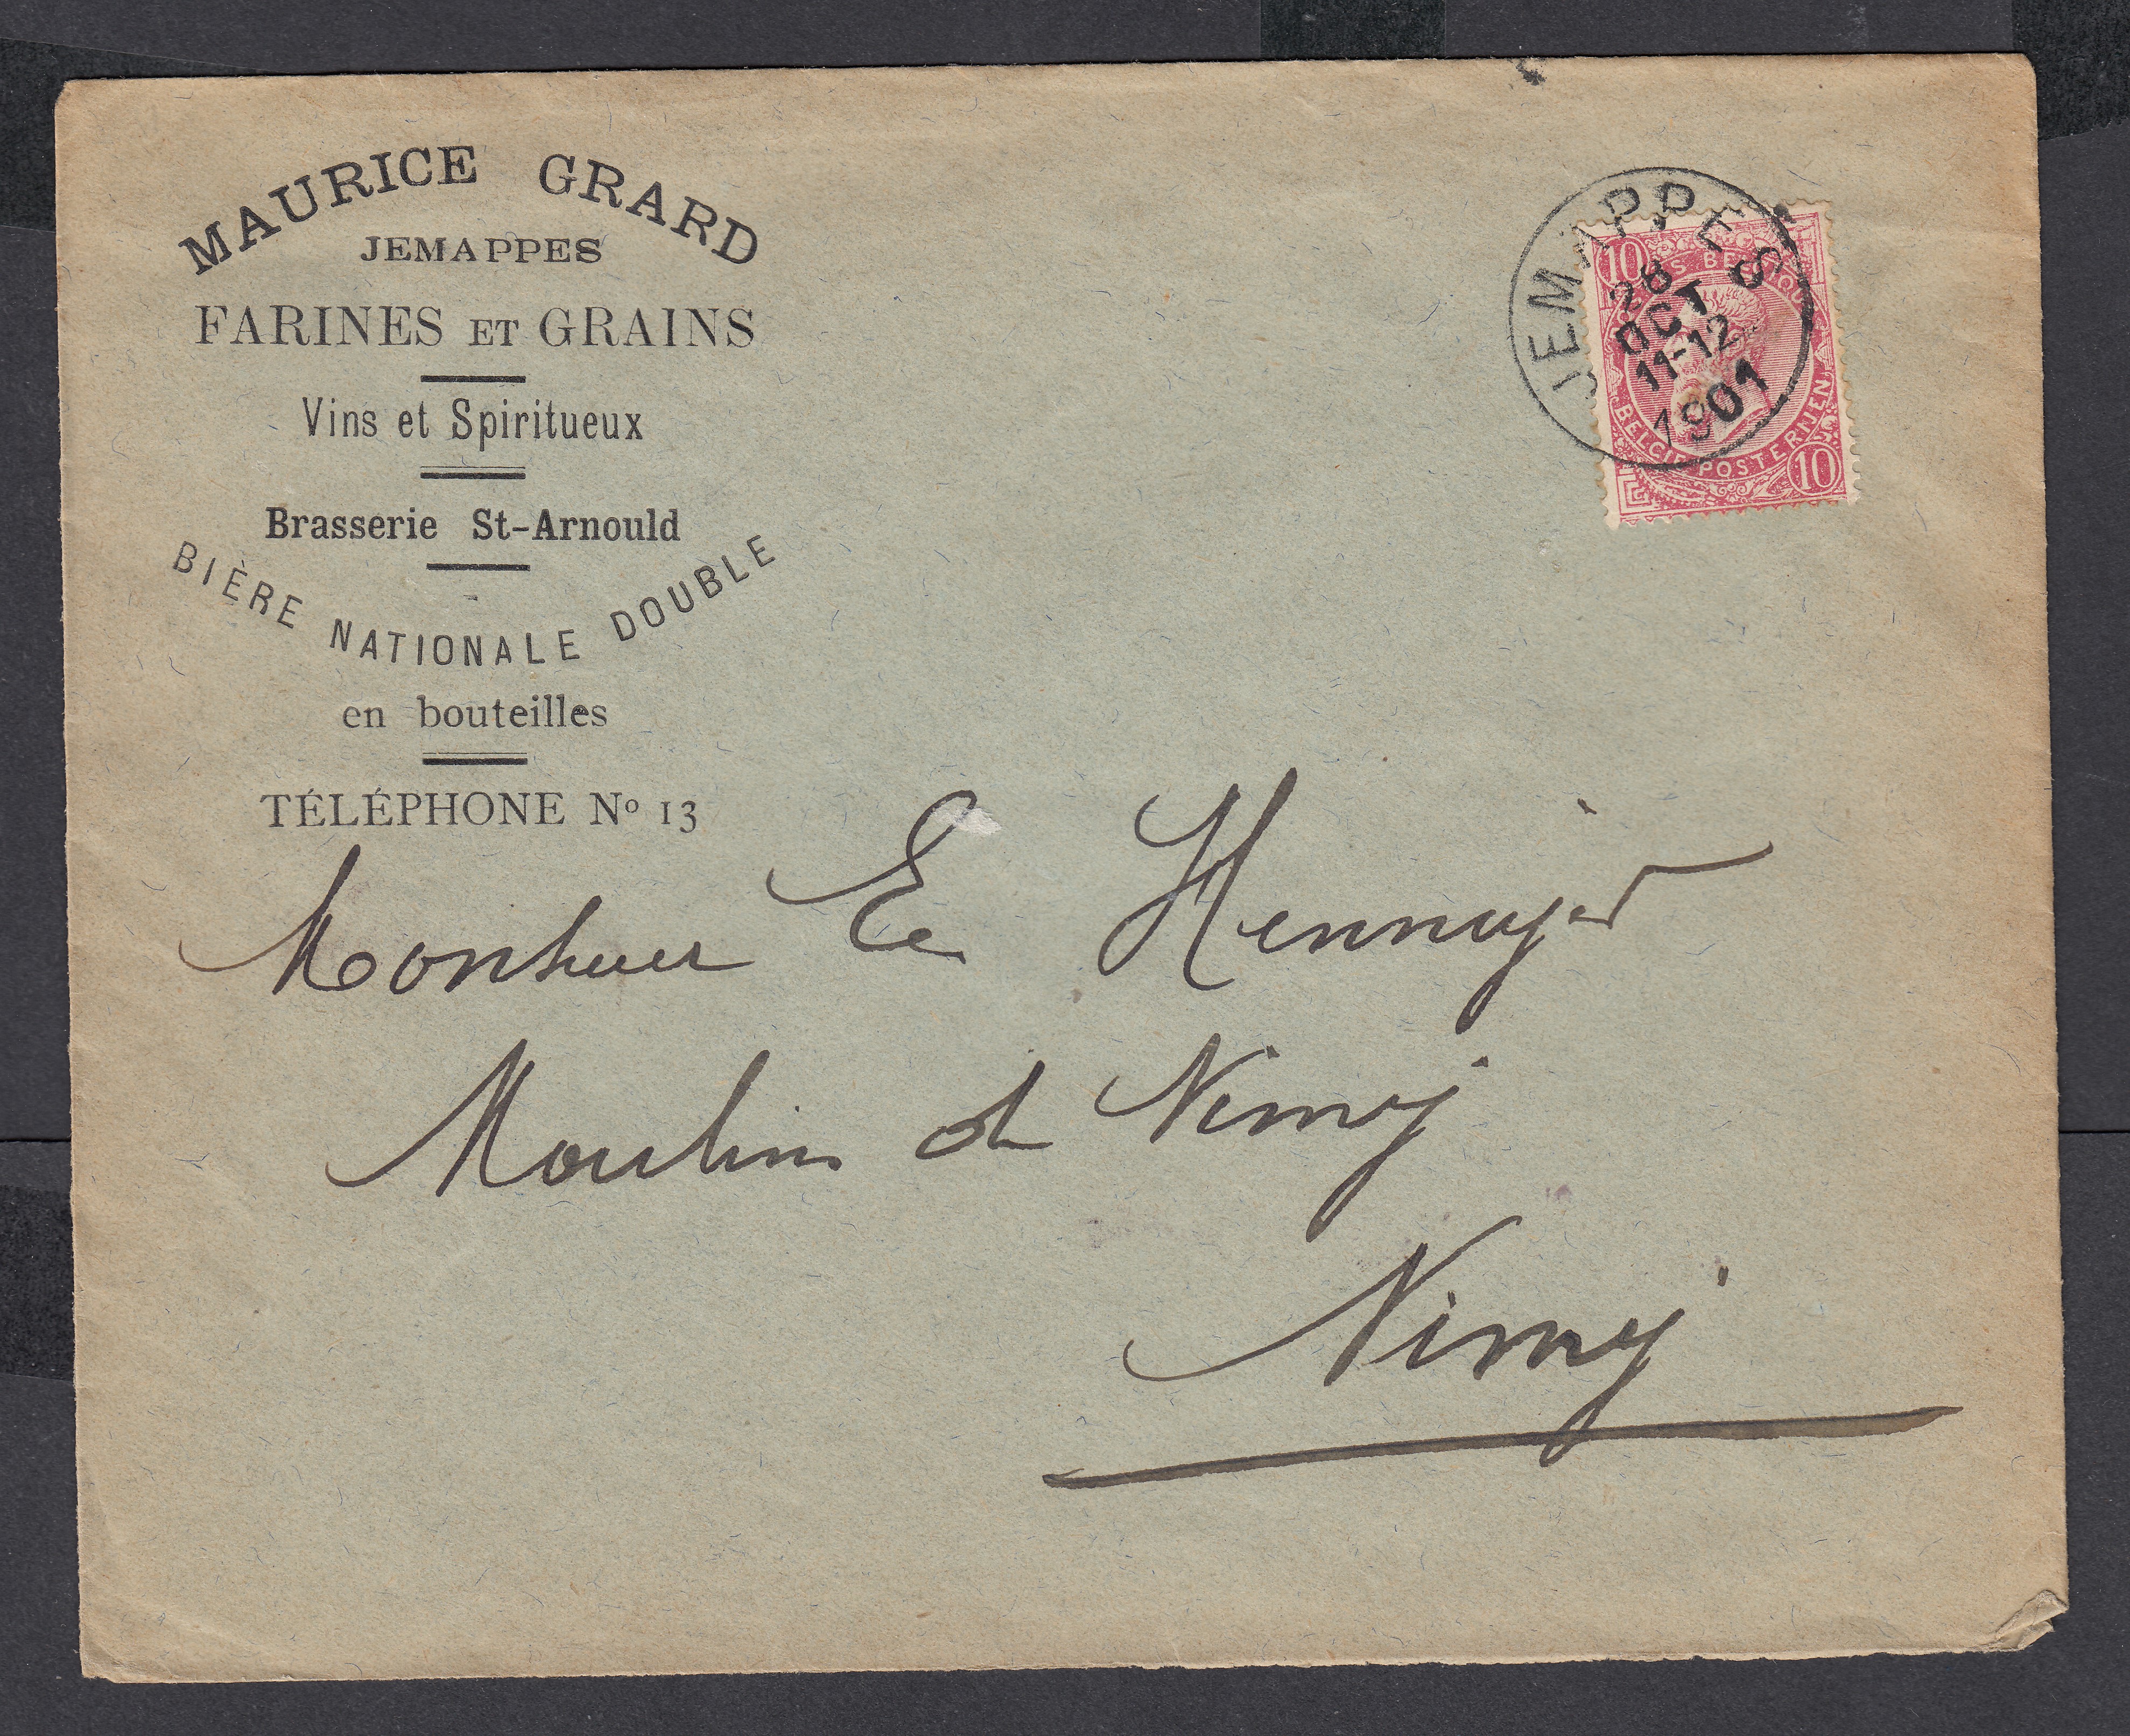 MAURICE GRARD
JEMAPPES
FARINES ET GRAINS
Vins et Spiritueux
Brasserie St-Arnould
BIÈRE NATIONALE DOUBLE
en bouteilles
TÉLÉPHONE Nº 13
JEMAPPES
28
OCT
11-12
1901
10
BELGIQUE
BELGIE POSTERIJEN
10
Monsieur
Moulin de Nimy
Nimy